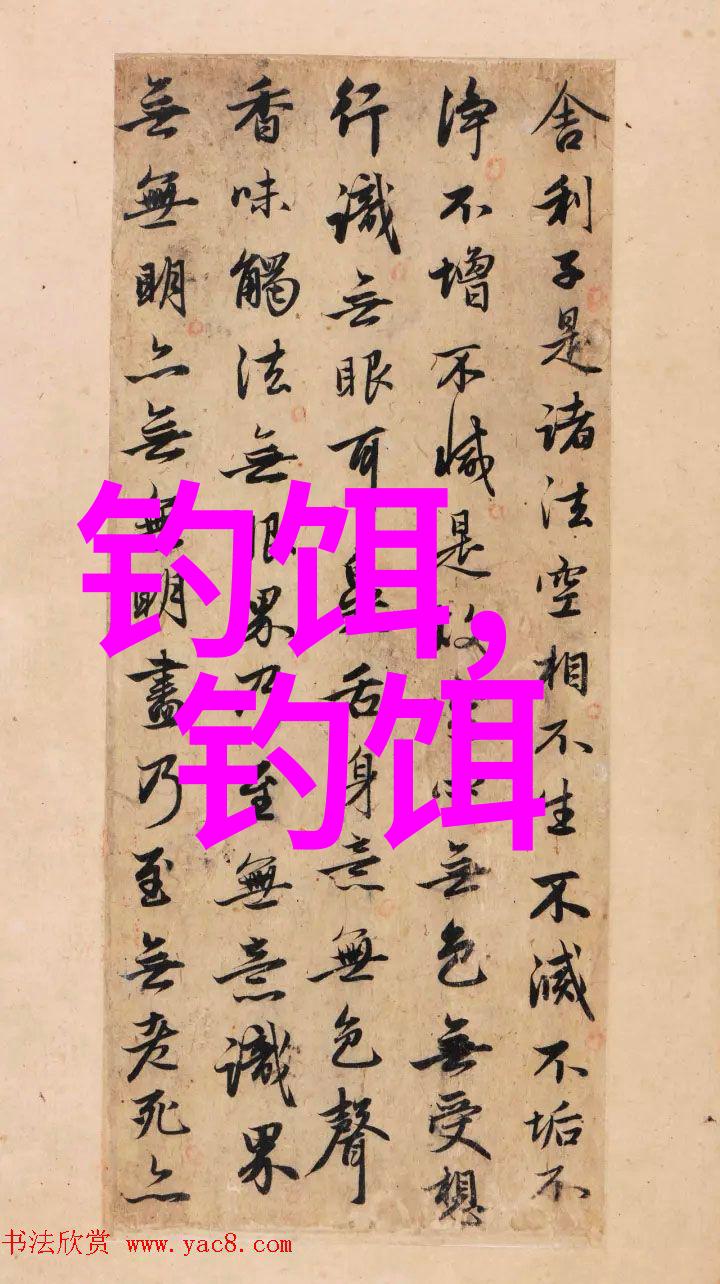 舍利子是諸法空相不生不滅不垢不
淨不增不減是故無色無受想
行識無眼耳鼻舌身意無色聲
香味觸法無眼界乃至無意識界
無無明亦無無明盡乃至無老死亦
钓饵,
钓饵
书法欣赏 www.yac8.com